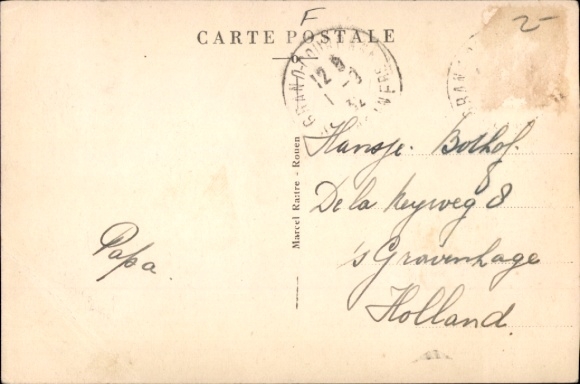 F
2-
CARTE POSTALE
12
1 - 3
32
Marcel Rattre - Rouen
Hansje. Bothof.
De la Reyweg 8
's Gravenhage
Holland.
Papa.